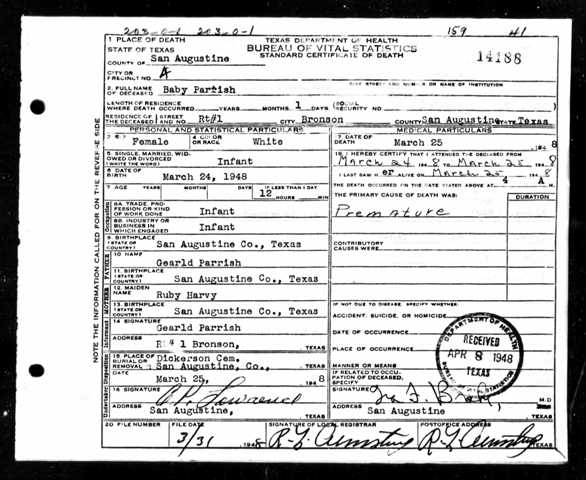 203-0-1 203-0-1 159 41
1 PLACE OF DEATH
STATE OF TEXAS
COUNTY OF San Augustine
TEXAS DEPARTMENT OF HEALTH
BUREAU OF VITAL STATISTICS
STANDARD CERTIFICATE OF DEATH
14188
CITY OR
PRECINCT NO. 4
GIVE STREET AND NUMBER OR NAME OF INSTITUTION
2. FULL NAME
OF DECEASED Baby Parrish
LENGTH OF RESIDENCE
WHERE DEATH OCCURRED YEARS MONTHS 1 DAYS (SOCIAL
SECURITY NO.
RESIDENCE OF STREET
THE DECEASED AND NO. Rt#1 CITY Bronson COUNTY San Augustine STATE Texas
PERSONAL AND STATISTICAL PARTICULARS
Female
4 COLOR
OR RACE White
5 SINGLE, MARRIED, WID-
OWED OR DIVORCED
(WRITE THE WORD) Infant
6 DATE OF
BIRTH March 24, 1948
7 AGE YEARS MONTHS DAYS IF LESS THAN 1 DAY
12 HOURS MIN
8A. TRADE, PRO-
FESSION OR KIND
OF WORK DONE Infant
8B. INDUSTRY OR
BUSINESS IN
WHICH ENGAGED Infant
9 BIRTHPLACE
(STATE OR
COUNTRY) San Augustine Co., Texas
FATHER
10 NAME
Gearld Parrish
11. BIRTHPLACE
(STATE OR
COUNTRY) San Augustine Co., Texas
MOTHER
12. MAIDEN
NAME Ruby Harvy
13. BIRTHPLACE
(STATE OR
COUNTRY) San Augustine Co., Texas
Informant
14 SIGNATURE
Gearld Parrish
ADDRESS Rt# 1 Bronson, TEXAS
15 PLACE OF
BURIAL OR
REMOVAL Dickerson Cem.
San Augustine, Co., TEXAS
DATE March 25, 1948
16 SIGNATURE
ADDRESS San Augustine, TEXAS
MEDICAL PARTICULARS
17 DATE OF
DEATH March 25 1948
18. I HEREBY CERTIFY THAT I ATTENDED THE DECEASED FROM
March 24 1948 TO March 25 1948
I LAST SAW H er ALIVE ON March 25 1948
THE DEATH OCCURRED ON THE DATE STATED ABOVE AT 4 A M
THE PRIMARY CAUSE OF DEATH WAS: DURATION
Premature
CONTRIBUTORY
CAUSES WERE:
IF NOT DUE TO DISEASE, SPECIFY WHETHER:
ACCIDENT, SUICIDE, OR HOMICIDE
DATE OF OCCURRENCE
PLACE OF OCCURRENCE
MANNER OR MEANS
IF RELATED TO OCCU-
PATION OF DECEASED,
SPECIFY
SIGNATURE M.D
ADDRESS San Augustine TEXAS
DEPARTMENT OF HEALTH
RECEIVED
APR 8 1948
TEXAS
BUREAU OF VITAL STATISTICS
20 FILE NUMBER FILE DATE SIGNATURE OF LOCAL REGISTRAR POSTOFFICE ADDRESS
3/31 1948
NOTE THE INFORMATION CALLED FOR ON THE REVERSE SIDE